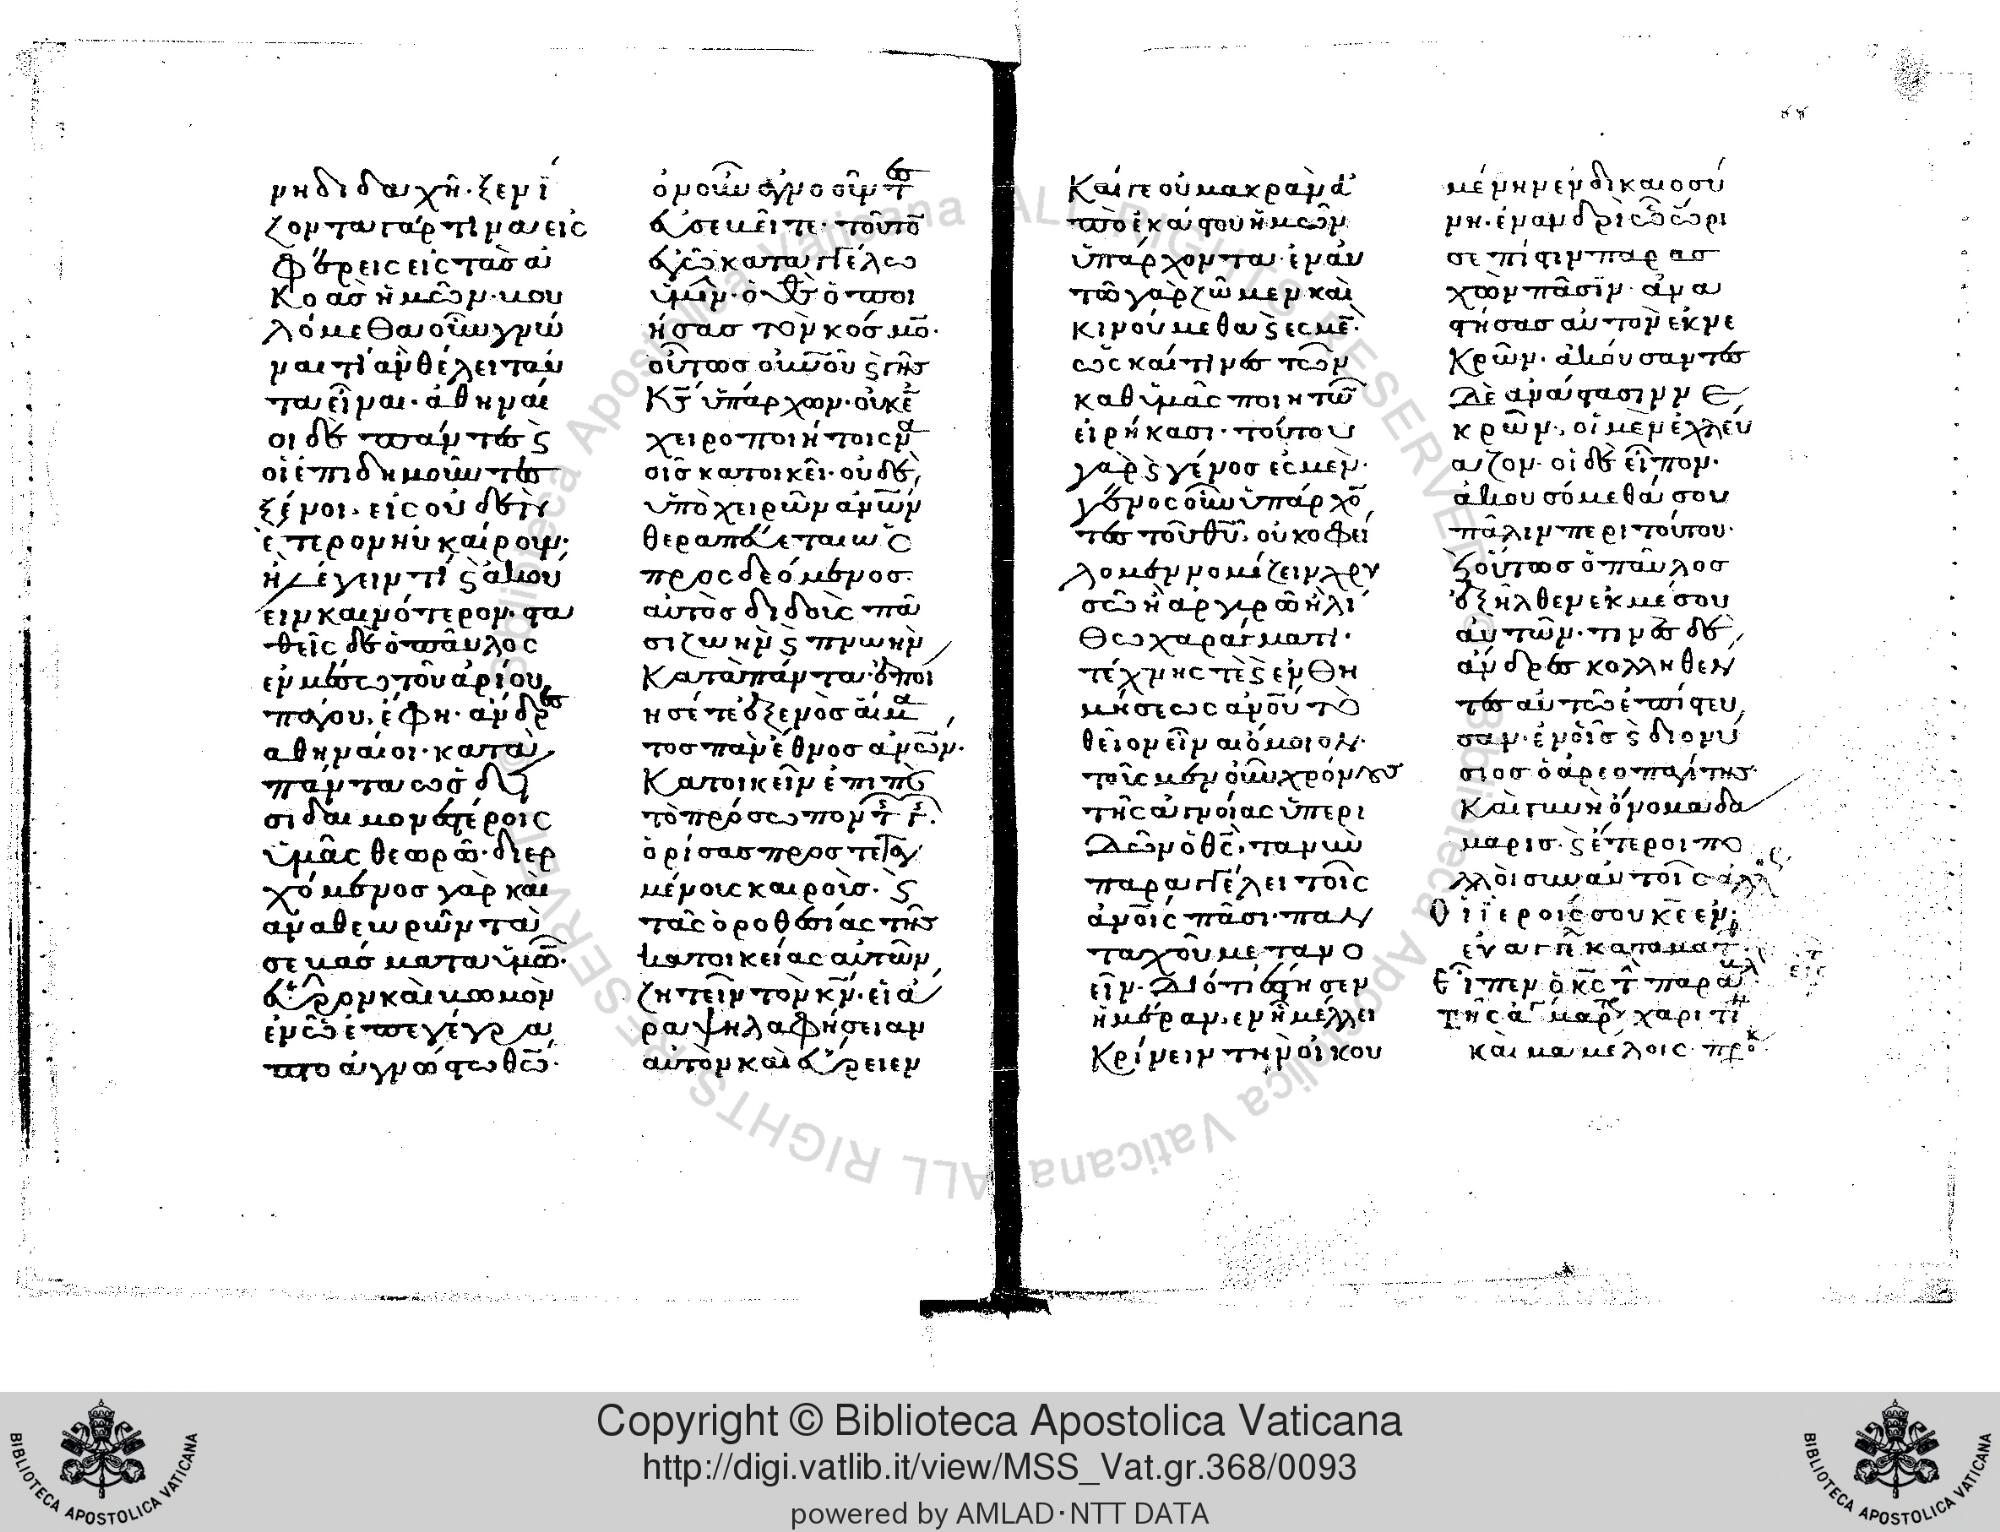 νη διδαχή· ξενί
ζοντα γάρ τινα εἰς
φέρεις εἰς τὰς ἀ
κοὰς ἡμῶν· βου
λόμεθα οὖν γνῶ
ναι τί ἂν θέλει ταῦ
τα εἶναι· ἀθηναῖ
οι δὲ πάντες ϗ
οἱ ἐπιδημοῦντες
ξένοι· εἰς οὐδὲν
ἕτερον ηὐκαίρουν·
ἢ λέγειν τί ϗ ἀκού
ειν καινότερον· στα
θεὶς δὲ ὁ παῦλος
ἐν μέσω τοῦ ἀρίου
πάγου, ἔφη· ἄνδρες
ἀθηναῖοι· κατὰ
πάντα ὡς δει
σιδαιμονεστέροις
ὑμᾶς θεωρῶ· διερ
χόμενος γὰρ καὶ
ἀναθεωρῶν τὰ
σεβάσματα ὑμῶν·
εὗρον καὶ βωμὸν
ἐν ᾧ ἐπεγέγρα
πτο ἀγνώστω θεῶ·
ὃν οὖν ἀγνοοῦντες
εὐσεβεῖτε· τοῦτο
ἐγὼ καταγγέλω
ὑμῖν· ὁ θς ὁ ποι
ήσας τὸν κόσμον·
οὗτος οὐνου ϗ γῆς
κς ὑπάρχων· οὐκ ἐν
χειροποιήτοις να
οῖς κατοικεῖ· οὐδὲ
ὑπὸ χειρῶν ἀνων
θεραπεύεται ὡς
προσδεόμενος·
αὐτὸς διδοὺς πᾶ
σι ζωὴν ϗ πνωὴν
κατὰ πάντα· ἐποί
ησέ τε ἐξ ἑνὸς αἵμα
τος πᾶν ἔθνος ἀνων·
κατοικεῖν ἐπὶ πᾶν
τὸ πρόσωπον τῆς γῆς·
ὁρίσας προστεταγ
μένους καιροῖς· ϗ
τὰς ὁροθεσίας τῆς
κατοικείας αὐτῶν
ζητεῖν τὸν κν· εἰ ἄ
ρα ψηλαφήσειαν
αὐτὸν καὶ εὕρειεν
καί γε οὐ μακρὰν ἀ
πὸ ἑκάστου ἡμῶν
ὑπάρχοντα· ἐν αὐ
τῶ γὰρ ζῶμεν καὶ
κινούμεθα ϗ ἐσμέν·
ὡς καί τινες τῶν
καθ ὑμᾶς ποιητῶν
εἰρήκασι· τούτου
γὰρ ϗ γένος ἐσμὲν·
γένος οὖν ὑπάρχον
τες τοῦ θυ, οὐκ ὀφεί
λομεν νομίζειν χρυ
σῶ ἢ ἀργυρῶ ἢ λί
θω χαράγματι·
τέχνης τὲ ϗ ἐνθη
μήσεως ἀνου τὸ
θεῖον εἶναι ὅμοιον·
τοὺς μὲν οὖν χρόνους
τῆς ἀγνοίας ὑπερι
δὼν ὁ θς, τανῦν
παραγγέλει τοῖς
ἀνοις πᾶσι· παν
ταχοῦ μετανο
εῖν· διότι ἔστησεν
ἡμέραν, ἐν ἧ μέλλει
κρίνειν τὴν οἰκου
μένην ἐν δικαιοσύ
νη· ἐν ἀνδρὶ ᾧ ὥρι
σε πίστιν παρασ
χὼν πᾶσϊν· ἀνα
στήσας αὐτὸν ἐκ νε
κρῶν· ἀκούσαντες
δὲ ἀνάστασιν νε
κρῶν, οἱ μὲν ἐχλεύ
αζον· οἱ δὲ εἶπον·
ἀκουσόμεθά σου
πάλιν περὶ τούτου·
ϗ οὕτως ὁ παῦλος
ἐξῆλθεν ἐκ μέσου
αὐτῶν· τινὲς δὲ
ἄνδρες κολληθέν
τες αὐτῶ ἐπίστευ
σαν· ἐν οἷς ϗ διονύ
σιος ὁ ἀρεοπαγίτης·
καὶ γυνὴ ὀνόματι δα
μαρις· ϗ ἕτεροι πο
λλοὶ σὺν αὐτοῖς
οἱ ϊεροίς σου κε ἐν·
εὐαγγ κατὰ ματ
εἶπεν ὁ κς τ παρα
της